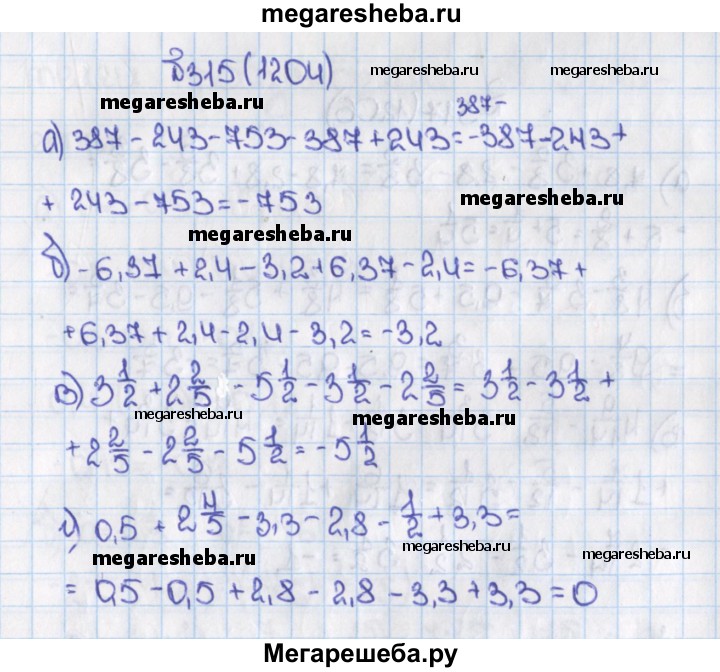 megaresheba.ru
№315 (1204)
megaresheba.ru
megaresheba.ru
megaresheba.ru
387-
а) 387 - 243 - 753 - 387 + 243 = -387 - 243 +
+ 243 - 753 = - 753
megaresheba.ru
megaresheba.ru
б) -6,37 + 2,4 - 3,2 + 6,37 - 2,4 = -6,37 +
+6,37 + 2,4 - 2,4 - 3,2 = -3,2
в) 3 1/2 + 2 2/5 - 5 1/2 - 3 1/2 - 2 2/5 = 3 1/2 - 3 1/2 +
megaresheba.ru
megaresheba.ru
+ 2 2/5 - 2 2/5 - 5 1/2 = - 5 1/2
г) 0,5 + 2 4/5 - 3,3 - 2,8 - 1/2 + 3,3 =
megaresheba.ru
megaresheba.ru
megaresheba.ru
= 0,5 - 0,5 + 2,8 - 2,8 - 3,3 + 3,3 = 0
Мегарешеба.ру